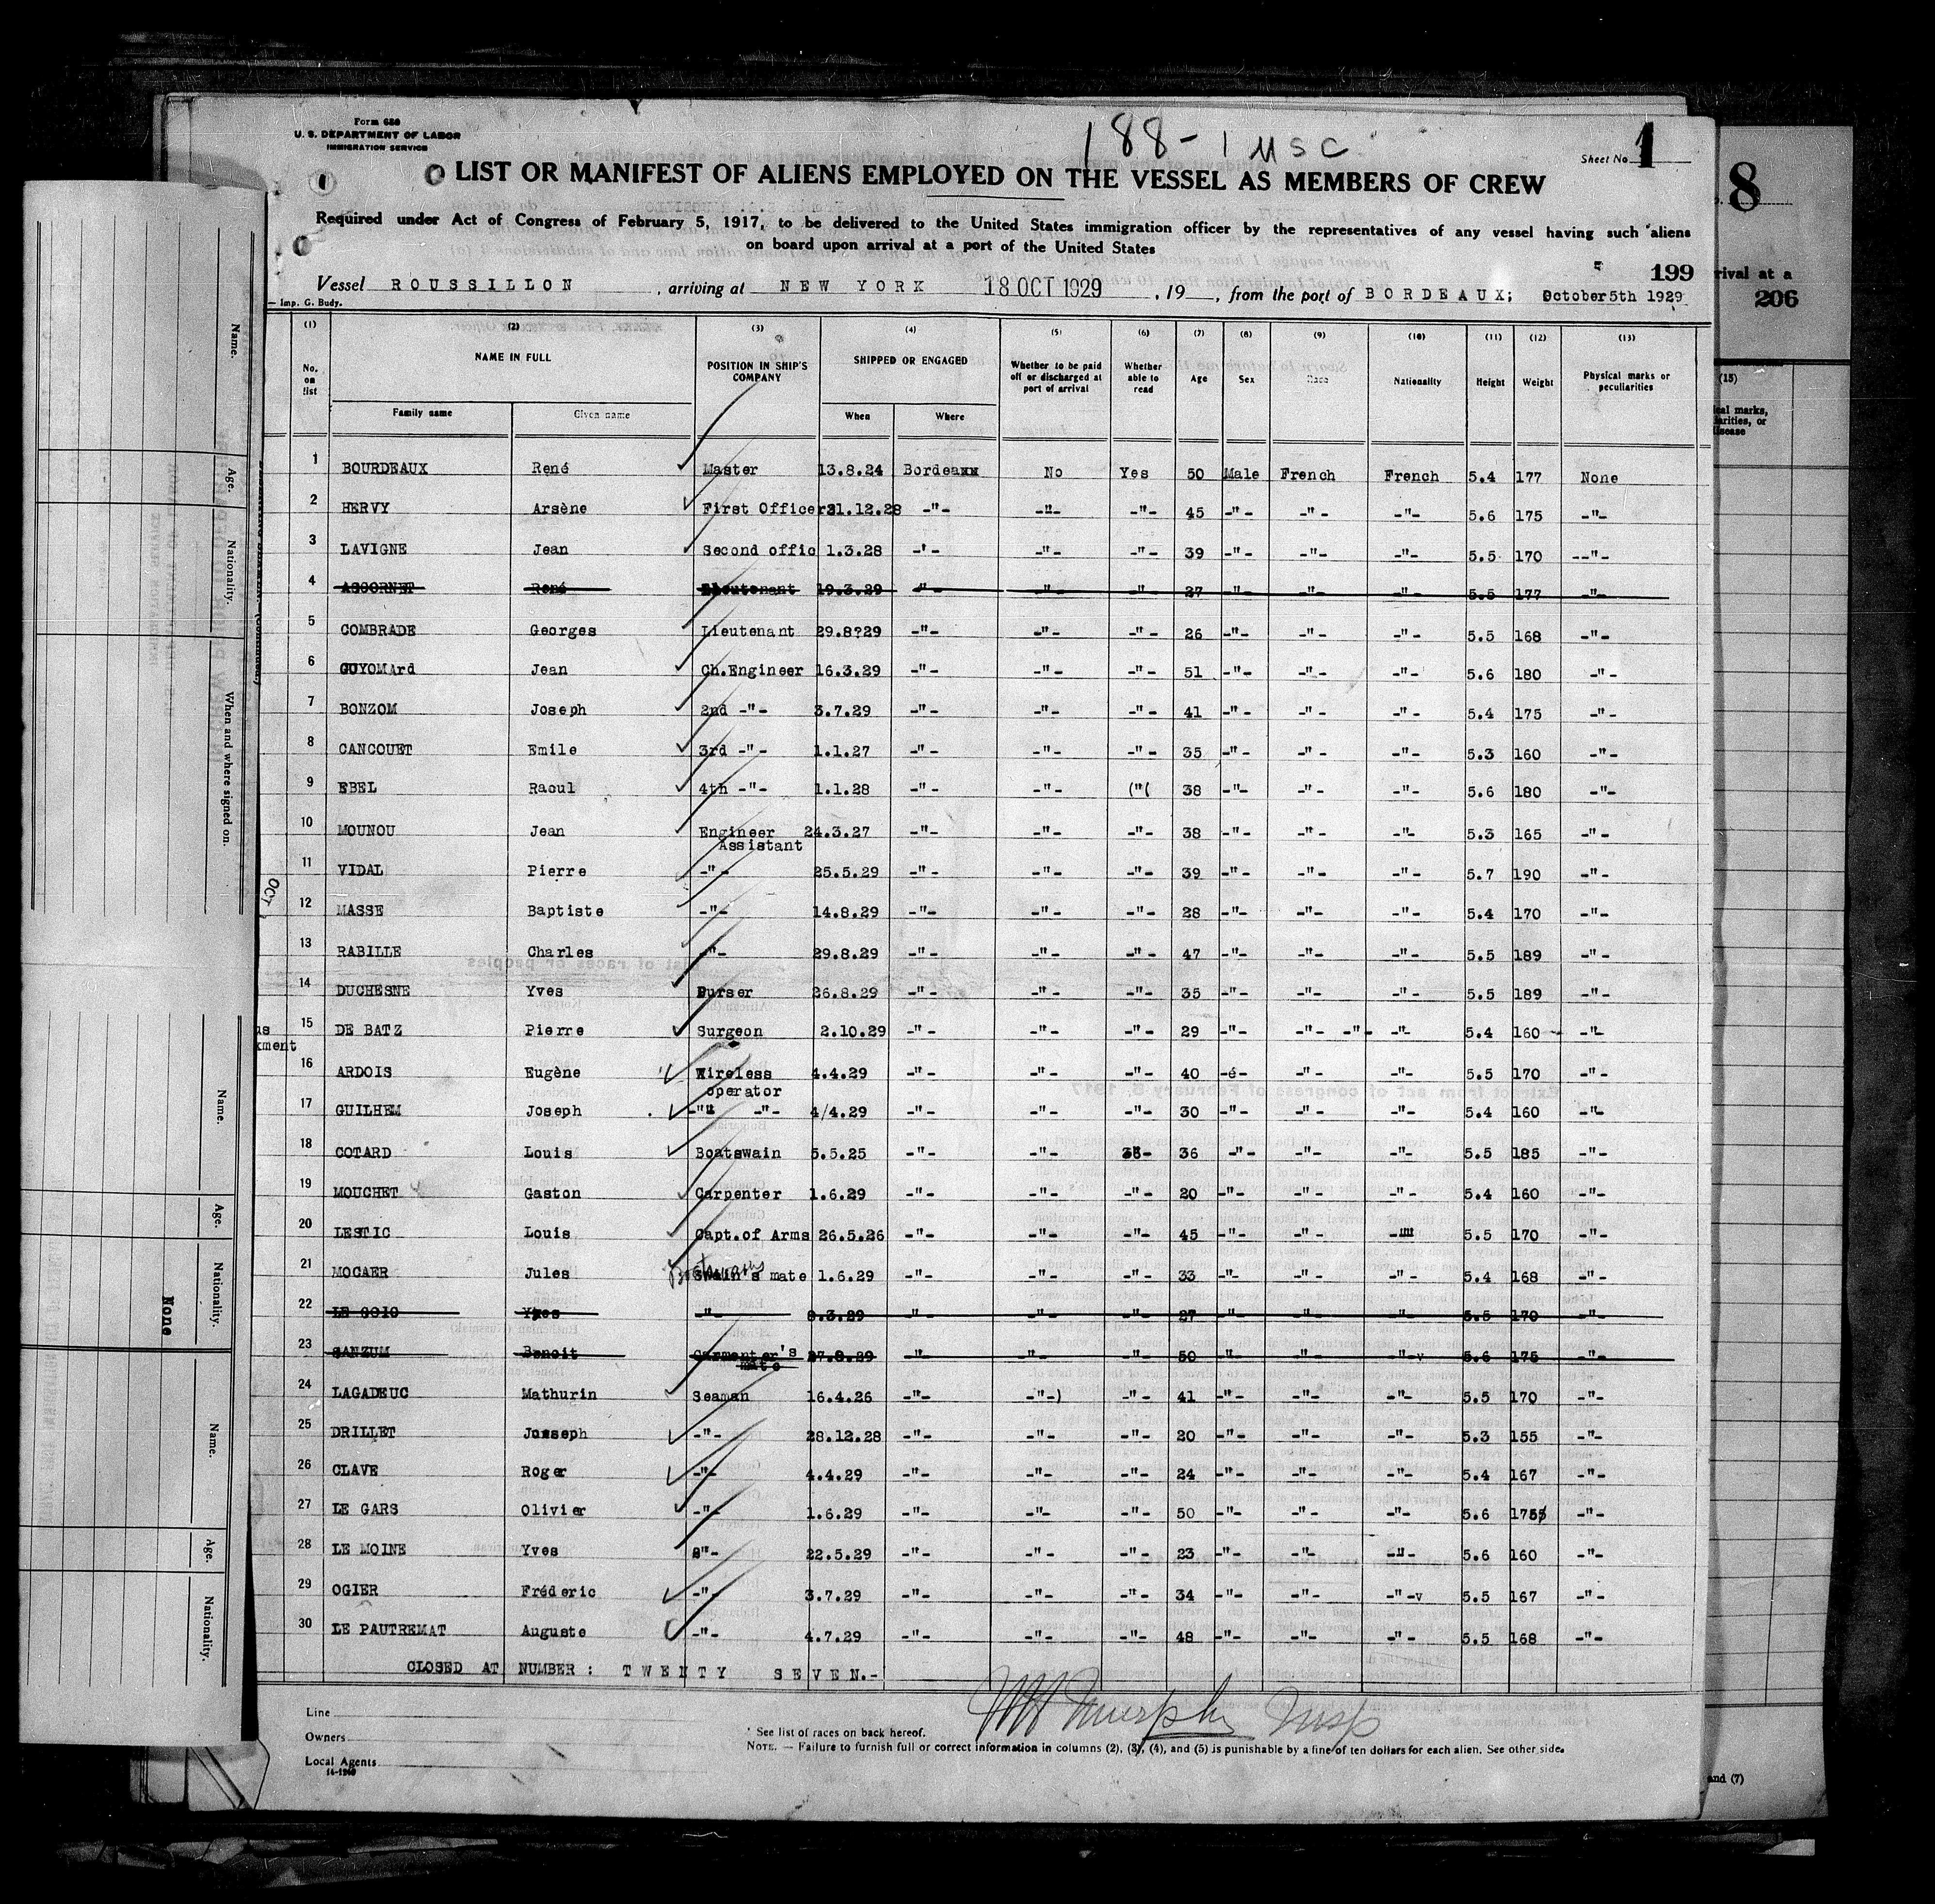 Form 680
U. S. DEPARTMENT OF LABOR
IMMIGRATION SERVICE
188 - 1 USC
Sheet No. 1
LIST OR MANIFEST OF ALIENS EMPLOYED ON THE VESSEL AS MEMBERS OF CREW
Required under Act of Congress of February 5, 1917, to be delivered to the United States immigration officer by the representatives of any vessel having such aliens
on board upon arrival at a port of the United States
199
Vessel ROUSSILLON , arriving at NEW YORK 18 OCT 1929 , 19 , from the port of BORDEAUX; October 5th 1929
— Imp. G. Budy.
(1) (2) (3) (4) (5) (6) (7) (8) (9) (10) (11) (12) (13)
No. on list NAME IN FULL POSITION IN SHIP'S COMPANY SHIPPED OR ENGAGED Whether to be paid off or discharged at port of arrival Whether able to read Age Sex Race Nationality Height Weight Physical marks or peculiarities
Family name Given name When Where
1 BOURDEAUX René Master 13.8.24 Bordeaux No Yes 50 Male French French 5.4 177 None
2 HERVY Arsène First Officer 31.12.28 -"- -"- -"- 45 -"- -"- -"- 5.6 175 -"-
3 LAVIGNE Jean Second offic 1.3.28 -'- -"- -"- 39 -"- -"- -"- 5.5 170 --"-
4 ASCORNET René Lieutenant 19.3.29 -"- -"- -"- 27 -"- -"- -"- 5.5 177 -"-
5 COMBRADE Georges Lieutenant 29.8?29 -"- -"- -"- 26 -"- -"- -"- 5.5 168 -"-
6 GUYOMArd Jean Ch.Engineer 16.3.29 -"- -"- -"- 51 -"- -"- -"- 5.6 180 -"-
7 BONZOM Joseph 2nd -"- 3.7.29 -"- -"- -"- 41 -"- -"- -"- 5.4 175 -"-
8 CANCOUET Emile 3rd -"- 1.1.27 -"- -"- -"- 35 -"- -"- -"- 5.3 160 -"-
9 EBEL Raoul 4th -"- 1.1.28 -"- -"- ("( 38 -"- -"- -"- 5.6 180 -"-
10 MOUNOU Jean Engineer 24.3.27 -"- -"- -"- 38 -"- -"- -"- 5.3 165 -"-
Assistant
11 VIDAL Pierre -"- 25.5.29 -"- -"- -"- 39 -"- -"- -"- 5.7 190 -"-
12 MASSE Baptiste -"- 14.8.29 -"- -"- -"- 28 -"- -"- -"- 5.4 170 -"-
13 RABILLE Charles -"- 29.8.29 -"- -"- -"- 47 -"- -"- -"- 5.5 189 -"-
14 DUCHESNE Yves Purser 26.8.29 -"- -"- -"- 35 -"- -"- -"- 5.5 189 -"-
15 DE BATZ Pierre Surgeon 2.10.29 -"- -"- -"- 29 -"- -"- -"- -"- 5.4 160 -"-
16 ARDOIS Eugène Wireless 4.4.29 -"- -"- -"- 40 -é- -"- -"- 5.5 170 -"-
operator
17 GUILHEM Joseph -"- -"- 4/4.29 -"- -"- -"- 30 -"- -"- -"- 5.4 160 -"-
18 COTARD Louis Boatswain 5.5.25 -"- -"- -"- 36 -"- -"- -"- 5.5 185 -"-
19 MOUCHET Gaston Carpenter 1.6.29 -"- -"- -"- 20 -"- -"- -"- 5.4 160 -"-
20 LESTIC Louis Capt.of Arms 26.5.26 -"- -"- -"- 45 -"- -"- -"- 5.5 170 -"-
21 MOCAER Jules Boatswain's mate 1.6.29 -"- -"- -"- 33 -"- -"- -"- 5.4 168 -"-
22 LE GOIC Yves -"- 8.3.29 -"- -"- -"- 27 -"- -"- -"- 5.5 170 -"-
23 SANZUM Benoit Carpenter's 27.8.29 -"- -"- -"- 50 -"- -"- -"-v 5.6 175 -"-
mate
24 LAGADEUC Mathurin Seaman 16.4.26 -"- -"-) -"- 41 -"- -"- -"- 5.5 170 -"-
25 DRILLET Joseph -"- 28.12.28 -"- -"- -"- 20 -"- -"- -"- 5.3 155 -"-
26 CLAVE Roger -"- 4.4.29 -"- -"- -"- 24 -"- -"- -"- 5.4 167 -"-
27 LE GARS Olivier -"- 1.6.29 -"- -"- -"- 50 -"- -"- -"- 5.6 175 -"-
28 LE MOINE Yves 8"- 22.5.29 -"- -"- -"- 23 -"- -"- -"- 5.6 160 -"-
29 OGIER Fréderic -"- 3.7.29 -"- -"- -"- 34 -"- -"- -"-v 5.5 167 -"-
30 LE PAUTREMAT Auguste -"- 4.7.29 -"- -"- -"- 48 -"- -"- -"- 5.5 168 -"-
CLOSED AT NUMBER : TWENTY SEVEN.-
Line
Owners
Local Agents
14-1240
W H Murphy Insp
* See list of races on back hereof.
NOTE. — Failure to furnish full or correct information in columns (2), (3), (4), and (5) is punishable by a fine of ten dollars for each alien. See other side.
Name.
Age.
Nationality.
When and where signed on.
Name.
Age.
Nationality.
None
Name.
Age.
Nationality.
OCT
kment
8
rival at a
206
(15)
cal marks,
arities, or
disease
and (7)